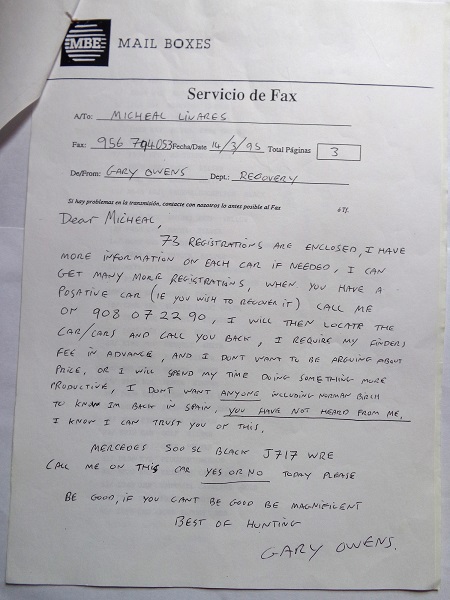 MBE MAIL BOXES
Servicio de Fax
A/To: MICHEAL LIVARES
Fax: 956 794053 Fecha/Date 14/3/95 Total Páginas 3
De/From: GARY OWENS Dept.: RECOVERY
Si hay problemas en la transmisión, contacte con nosotros lo antes posible al Fax ó Tf.
Dear Micheal,
73 REGISTRATIONS ARE ENCLOSED, I HAVE
MORE INFORMATION ON EACH CAR IF NEEDED, I CAN
GET MANY MORE REGISTRATIONS, WHEN YOU HAVE A
POSATIVE CAR (IE YOU WISH TO RECOVER IT) CALL ME
ON 908 07 22 90, I WILL THEN LOCATE THE
CAR/CARS AND CALL YOU BACK, I REQUIRE MY FINDERS
FEE IN ADVANCE, AND I DONT WANT TO BE ARGUING ABOUT
PRICE, OR I WILL SPEND MY TIME DOING SOMETHING MORE
PRODUCTIVE, I DONT WANT ANYONE INCLUDING NORMAN BIRCH
TO KNOW IM BACK IN SPAIN, YOU HAVE NOT HEARD FROM ME,
I KNOW I CAN TRUST YOU ON THIS,
MERCEDES 500 SL BLACK J717 WRE
CALL ME ON THIS CAR YES OR NO TODAY PLEASE
BE GOOD, IF YOU CANT BE GOOD BE MAGNIFICENT
BEST OF HUNTING
GARY OWENS.